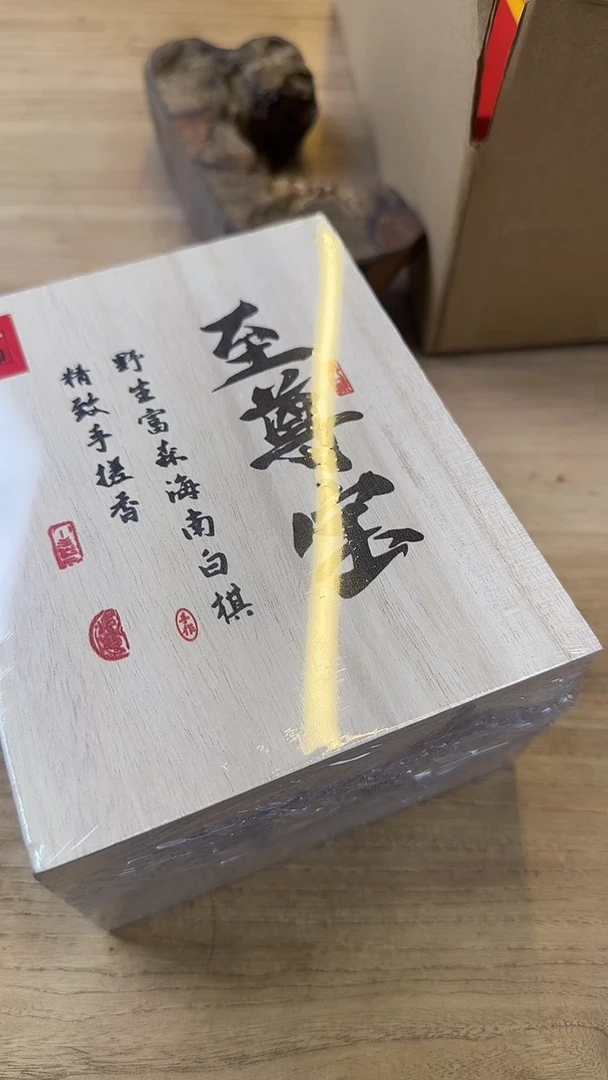 至尊宝
野生富森海南白棋
精致手搓香
手作